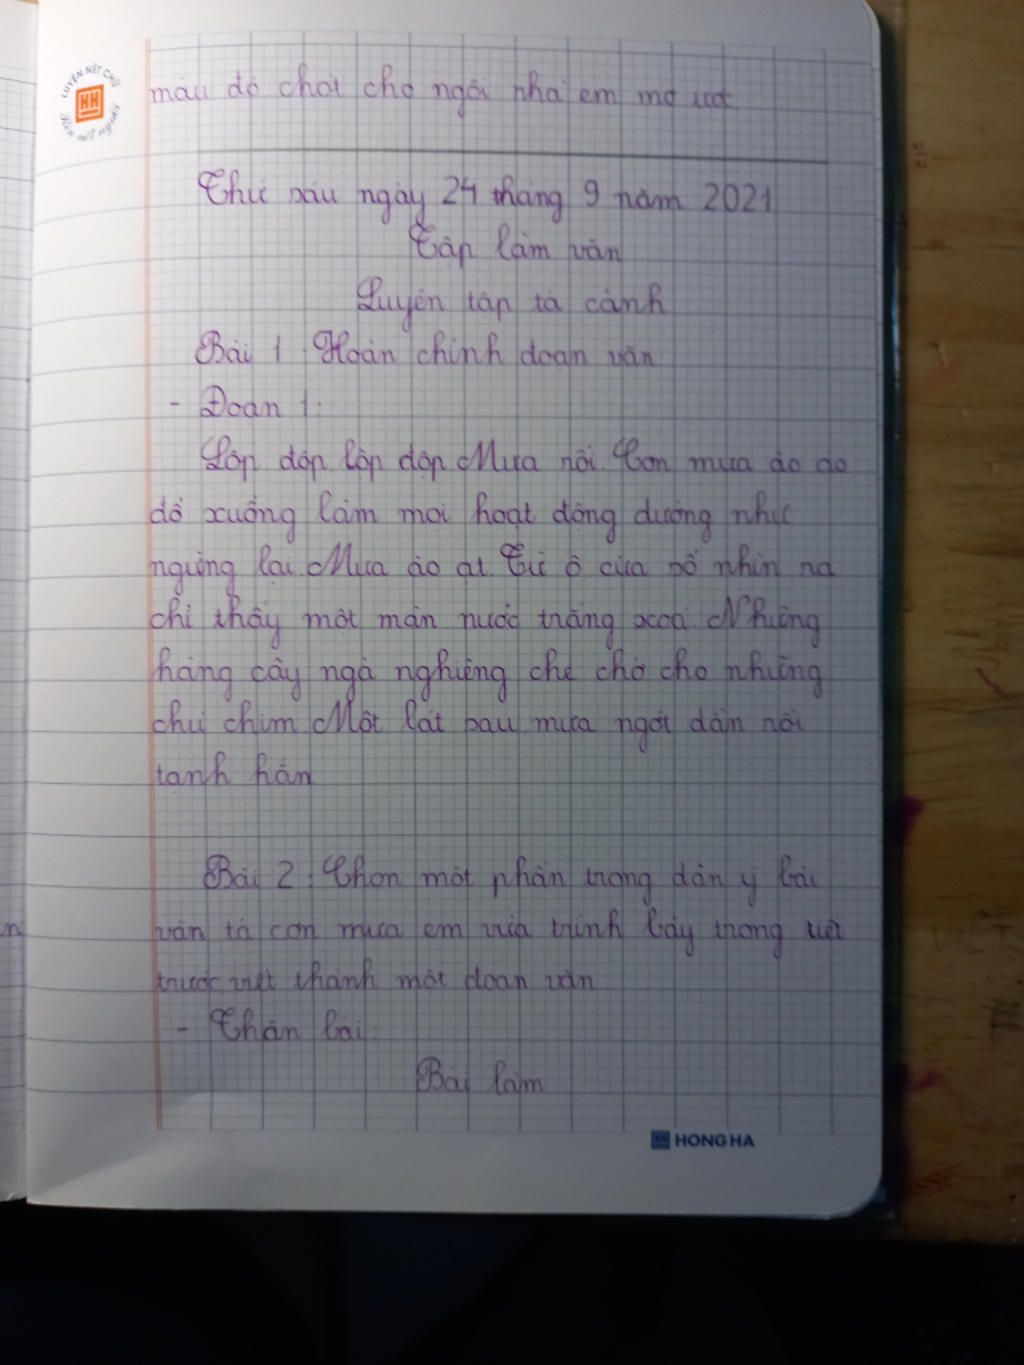 LUYỆN NÉT CHỮ
HH
Rèn nết người
màu đỏ chót cho ngôi nhà em mơ ước
Thứ sáu ngày 24 tháng 9 năm 2021
Tập làm văn
Luyện tập tả cảnh
Bài 1: Hoàn chỉnh đoạn văn
- Đoạn 1:
Lộp độp lộp độp Mưa rồi. Cơn mưa ào ào
đổ xuống làm mọi hoạt động dường như
ngừng lại. Mưa ào ạt. Từ ô cửa sổ nhìn ra
chỉ thấy một màn nước trắng xoá. Những
hàng cây ngả nghiêng che chở cho những
chú chim Một lát sau mưa ngớt dần rồi
tạnh hẳn
Bài 2: Chọn một phần trong dàn ý bài
văn tả cơn mưa em vừa trình bày trong tiết
trước viết thành một đoạn văn
- Thân bài:
Bài làm
HONG HA